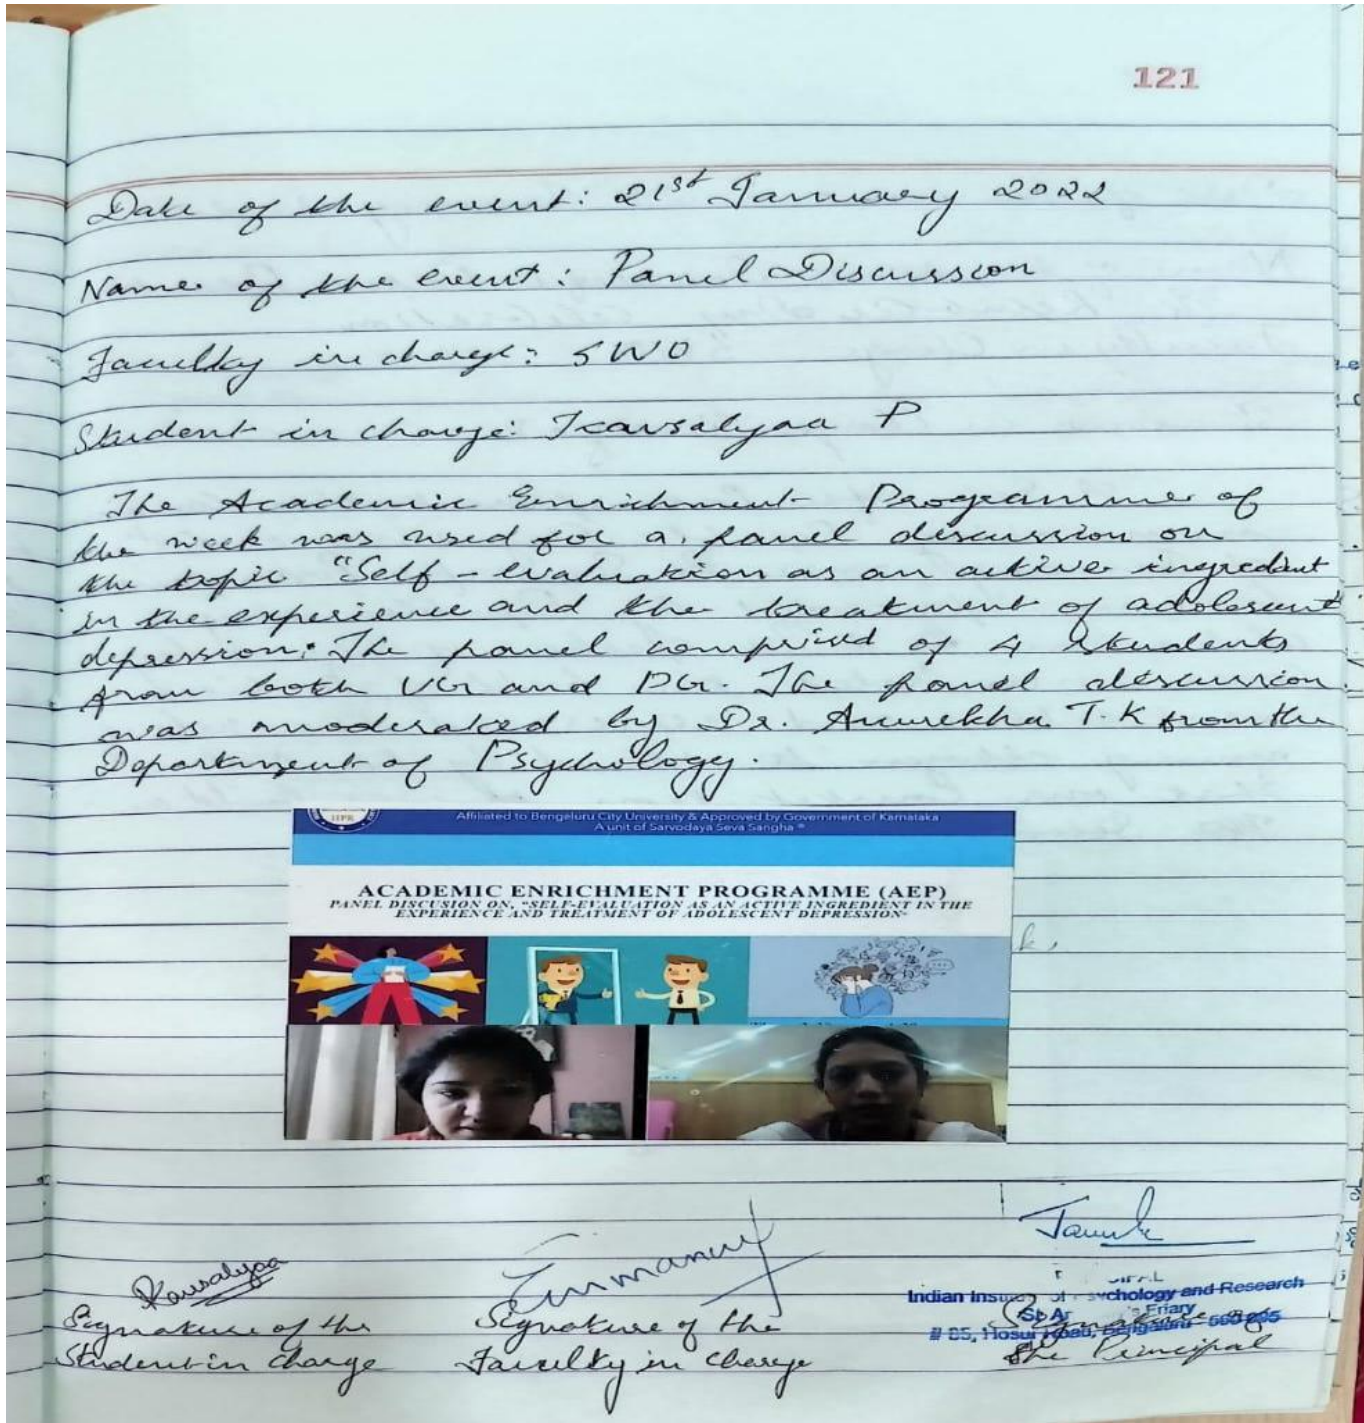 121
Date of the event: 21st January 2022
Name of the event: Panel Discussion
Faculty in charge: SWO
Student in charge: Kavsalyaa P
The Academic Enrichment Programme of
the week was used for a panel discussion on
the topic "Self-evaluation as an active ingredient
in the experience and the treatment of adolescent
depression. The panel comprised of 4 students
from both UG and PG. The panel discussion
was moderated by Dr. Anurekha T.K from the
Department of Psychology.
IIPR
Affiliated to Bengeluru City University & Approved by Government of Karnataka
A unit of Sarvodaya Seva Sangha ®
ACADEMIC ENRICHMENT PROGRAMME (AEP)
PANEL DISCUSION ON, "SELF-EVALUATION AS AN ACTIVE INGREDIENT IN THE
EXPERIENCE AND TREATMENT OF ADOLESCENT DEPRESSION"
Kausalyaa
Emmanuel
Signature of the
Student in charge
Signature of the
Faculty in charge
Indian of Psychology and Research
Friary
# 85, Hosur Road, Bengaluru
Signature of
the Principal